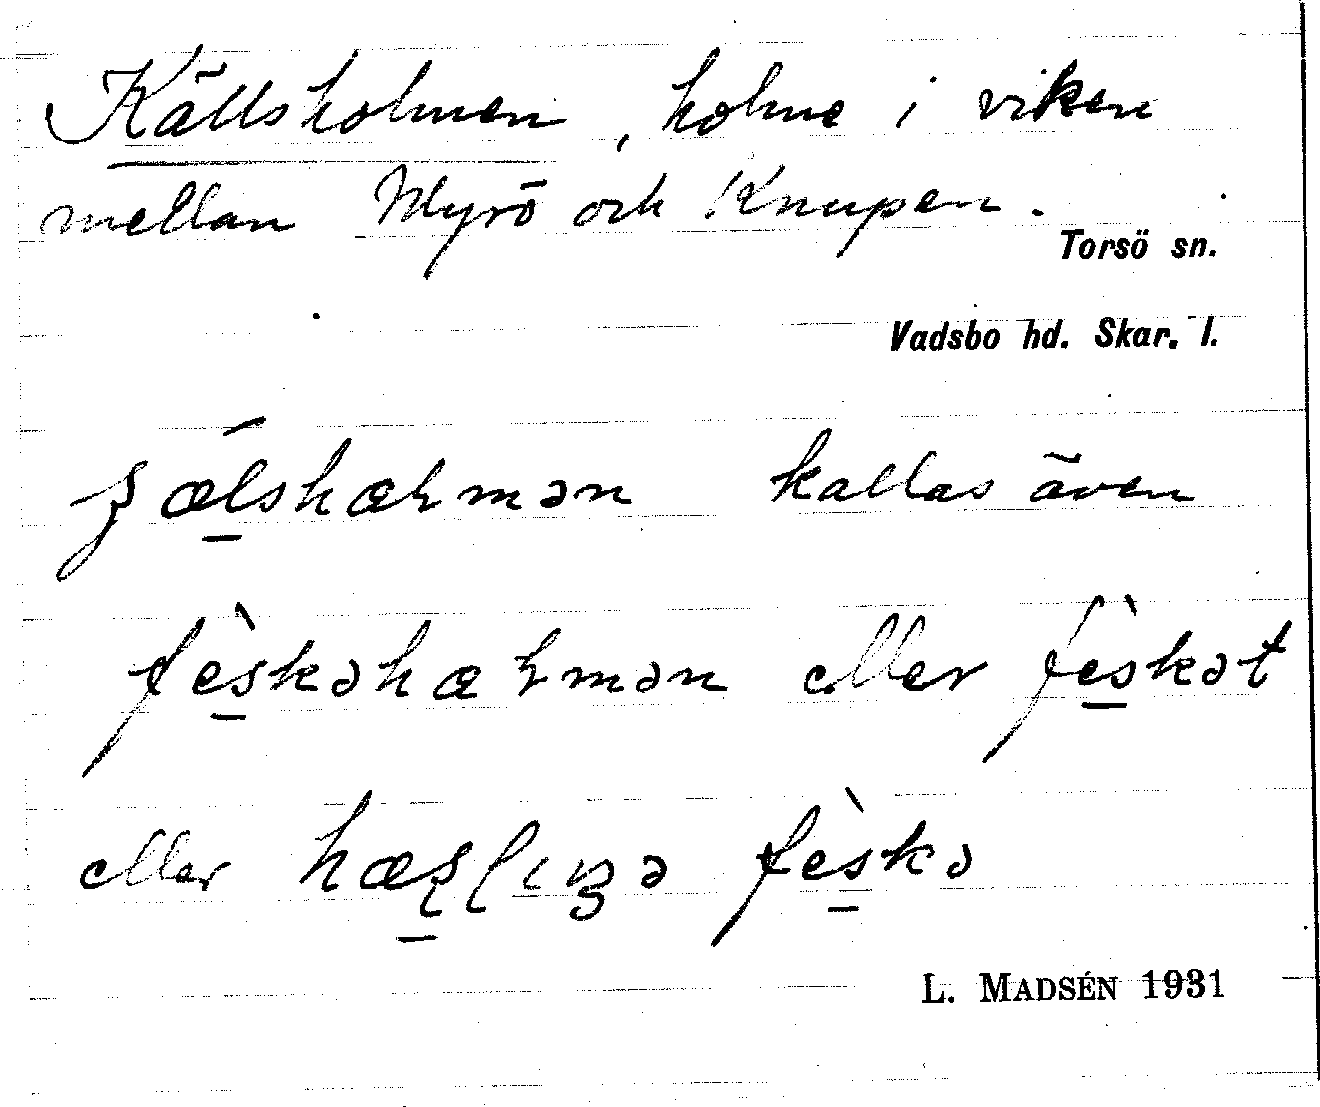 Källsholmen, holme i viken
mellan Myrö och Knupen.
Torsö sn.
Vadsbo hd. Skar. l.
kallas även
fèskəhæɽmən eller fèskət
eller fèskə
L. MADSÉN 1931